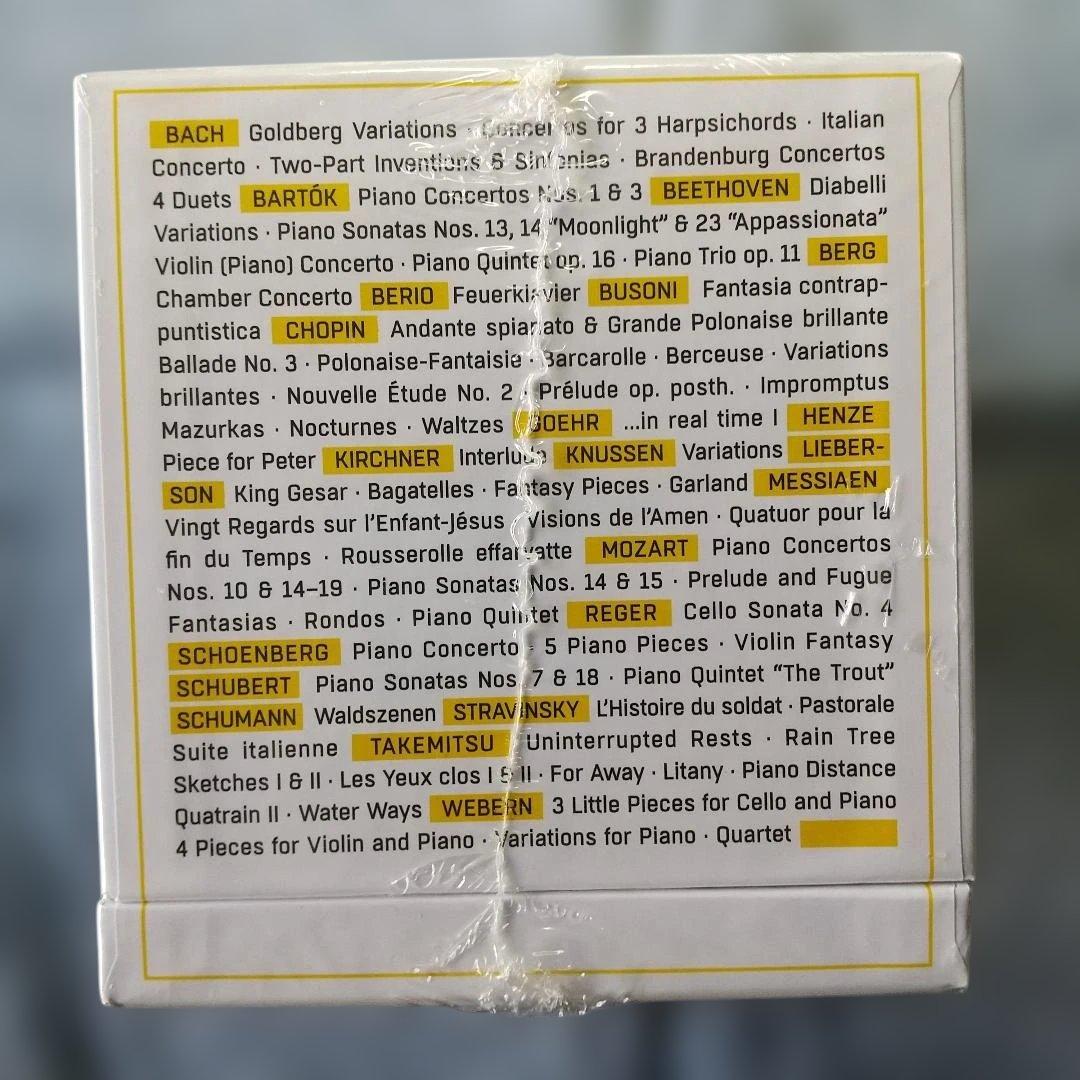 BACH Goldberg Variations · Concertos for 3 Harpsichords · Italian
Concerto · Two-Part Inventions & Sinfonias · Brandenburg Concertos
4 Duets BARTÓK Piano Concertos Nos. 1 & 3 BEETHOVEN Diabelli
Variations · Piano Sonatas Nos. 13, 14 “Moonlight” & 23 “Appassionata”
Violin (Piano) Concerto · Piano Quintet op. 16 · Piano Trio op. 11 BERG
Chamber Concerto BERIO Feuerklavier BUSONI Fantasia contrap-
puntistica CHOPIN Andante spianato & Grande Polonaise brillante
Ballade No. 3 · Polonaise-Fantaisie · Barcarolle · Berceuse · Variations
brillantes · Nouvelle Étude No. 2 · Prélude op. posth. · Impromptus
Mazurkas · Nocturnes · Waltzes GOEHR ...in real time I HENZE
Piece for Peter KIRCHNER Interlude KNUSSEN Variations LIEBER-
SON King Gesar · Bagatelles · Fantasy Pieces · Garland MESSIAEN
Vingt Regards sur l’Enfant-Jésus · Visions de l’Amen · Quatuor pour la
fin du Temps · Rousserolle effarvatte MOZART Piano Concertos
Nos. 10 & 14–19 · Piano Sonatas Nos. 14 & 15 · Prelude and Fugue
Fantasias · Rondos · Piano Quintet REGER Cello Sonata No. 4
SCHOENBERG Piano Concerto · 5 Piano Pieces · Violin Fantasy
SCHUBERT Piano Sonatas Nos. 7 & 18 · Piano Quintet “The Trout”
SCHUMANN Waldszenen STRAVINSKY L’Histoire du soldat · Pastorale
Suite italienne TAKEMITSU Uninterrupted Rests · Rain Tree
Sketches I & II · Les Yeux clos I & II · For Away · Litany · Piano Distance
Quatrain II · Water Ways WEBERN 3 Little Pieces for Cello and Piano
4 Pieces for Violin and Piano · Variations for Piano · Quartet